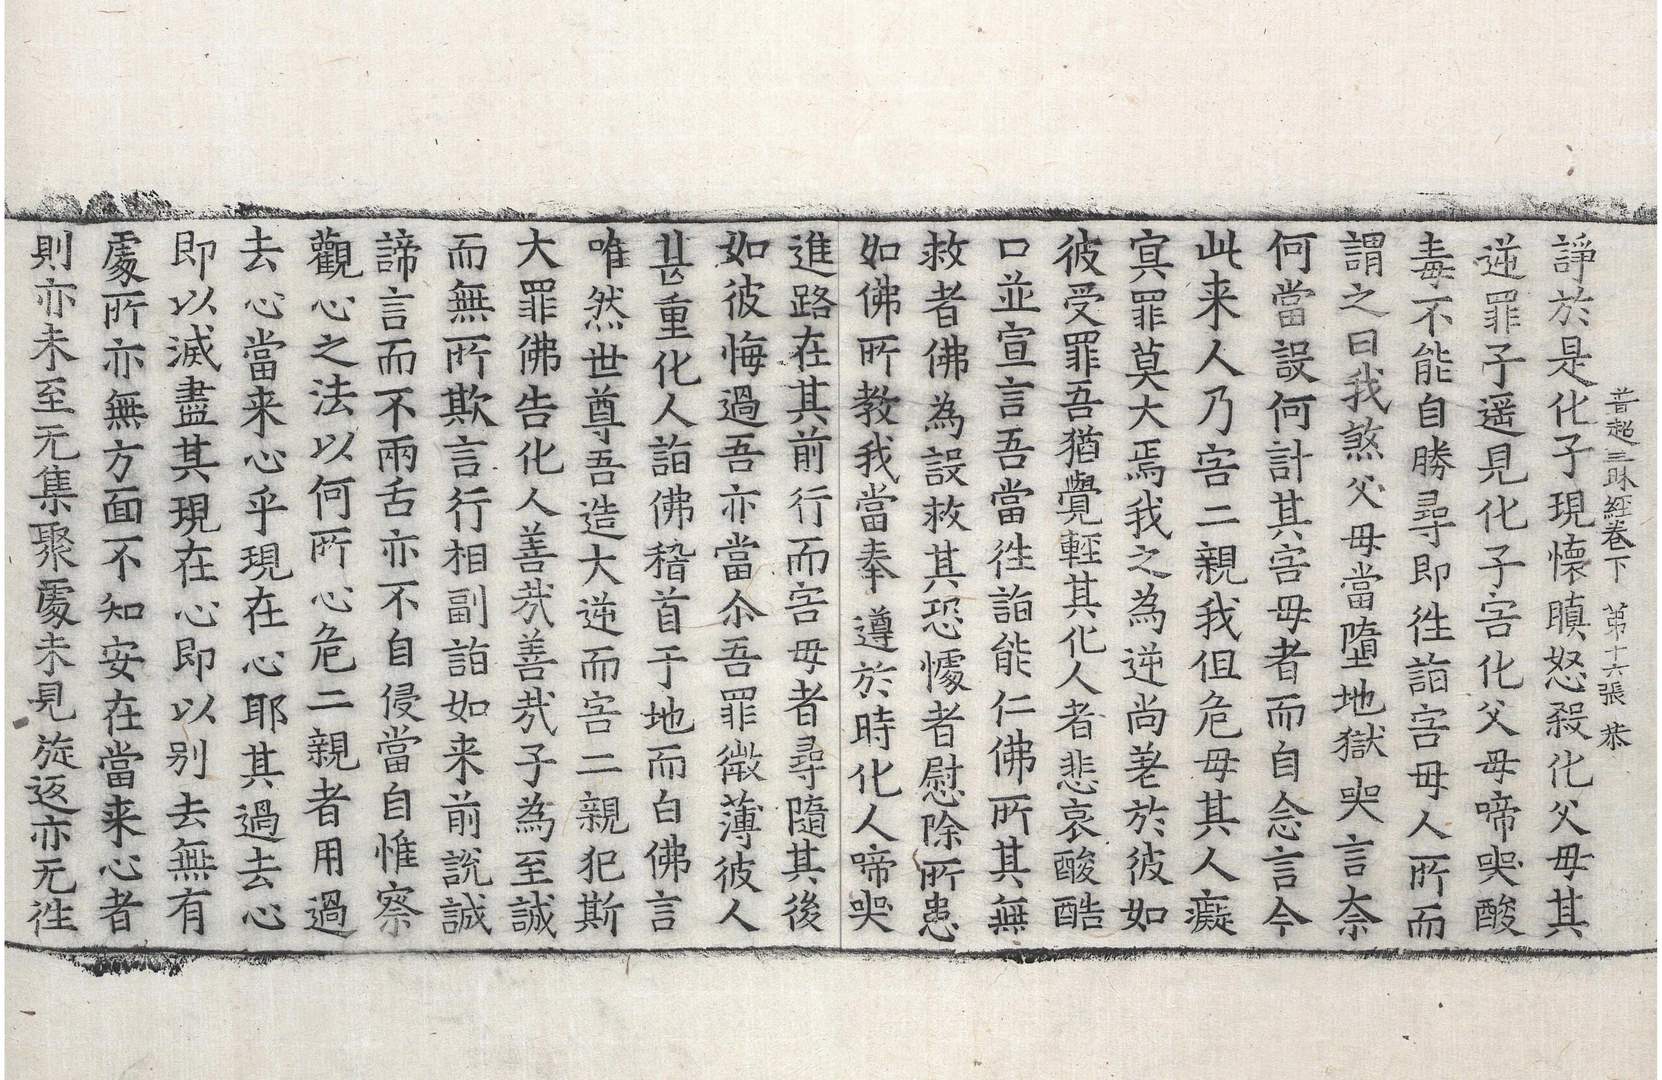 普超三昧經卷下　第十六張　恭
諍於是化子現懷瞋怒殺化父母其
逆罪子遥見化子害化父母啼哭酸
毒不能自勝尋即徃詣害母人所而
謂之曰我煞父母當墮地獄哭言奈
何當設何計其害母者而自念言今
此来人乃害二親我但危母其人癡
冥罪莫大焉我之為逆尚差於彼如
彼受罪吾猶覺輕其化人者悲哀酸酷
口並宣言吾當徃詣能仁佛所其無
救者佛為設救其恐懅者慰除所患
如佛所教我當奉遵於時化人啼哭
進路在其前行而害母者尋隨其後
如彼悔過吾亦當尒吾罪微薄彼人
甚重化人詣佛稽首于地而白佛言
唯然世尊吾造大逆而害二親犯斯
大罪佛告化人善哉善哉子為至誠
而無所欺言行相副詣如来前說誠
諦言而不兩舌亦不自侵當自惟察
觀心之法以何所心危二親者用過
去心當来心乎現在心耶其過去心
即以滅盡其現在心即以别去無有
處所亦無方面不知安在當来心者
則亦未至无集聚處未見旋返亦无徃